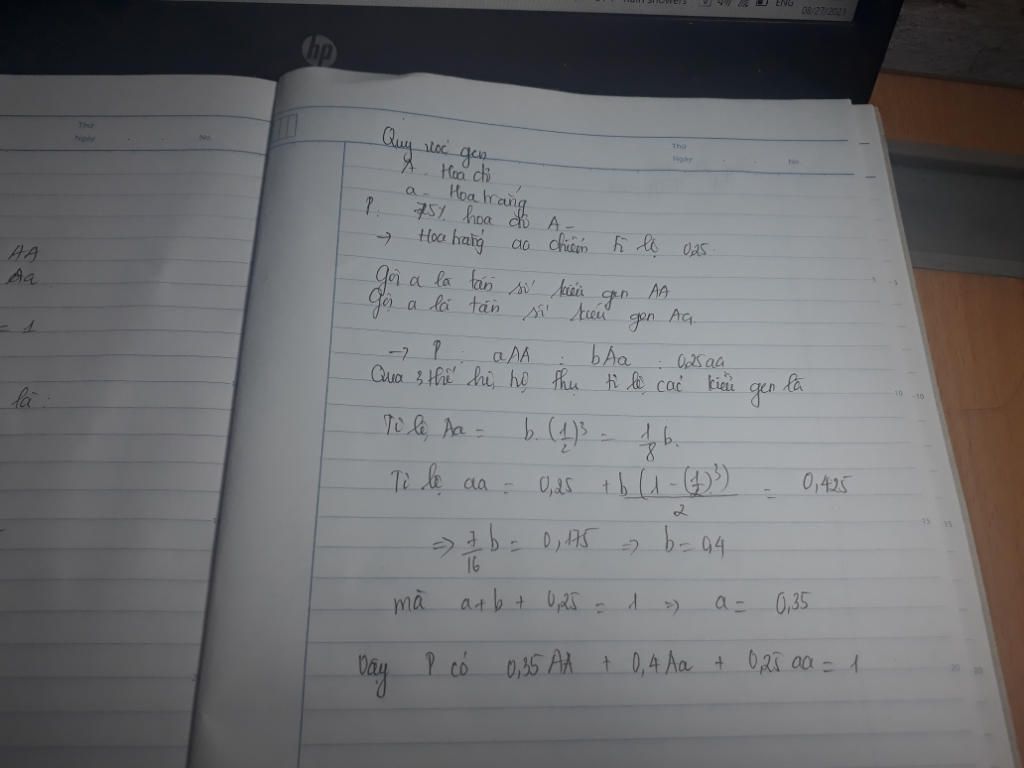 rain showers
ENG
08/27/2021
hp
Thứ
Ngày
No.
AA
Aa
= 1
là:
Thứ
Ngày
No.
Quy ước gen
A - Hoa đỏ
a - Hoa trắng
P: 75% hoa đỏ A-
→ Hoa trắng aa chiếm tỉ lệ 0,25.
Gọi a là tần số kiểu gen AA
Gọi a là tần số kiểu gen Aa
→ P: aAA : bAa : 0,25aa
Qua 3 thế hệ, hệ thụ tỉ lệ các kiểu gen là
Tỉ lệ Aa = b.(1/2)^3 = 1/8 b.
Tỉ lệ aa = 0,25 + b(1-(1/2)^3)/2 = 0,425
=> 7/16 b = 0,175 => b = 0,4
mà a + b + 0,25 = 1 => a = 0,35
Vậy P có 0,35 AA + 0,4 Aa + 0,25 aa = 1